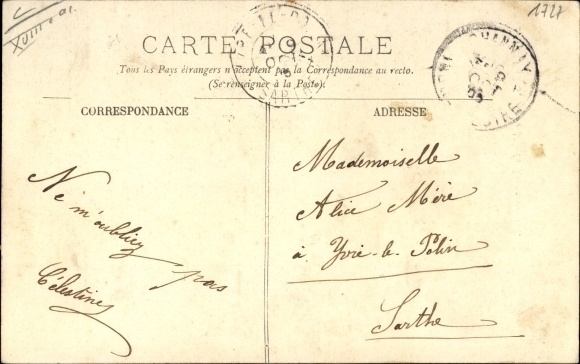 1727
XVIII e a1.
CARTE POSTALE
Tous les Pays étrangers n'acceptent pas la Correspondance au recto.
(Se renseigner à la Poste).
SARTHE
CHANNAY
CORRESPONDANCE
ADRESSE
Ne m'oubliez
pas
Célestine
Mademoiselle
Alice Méré
à Yvré-le-Pôlin
Sarthe